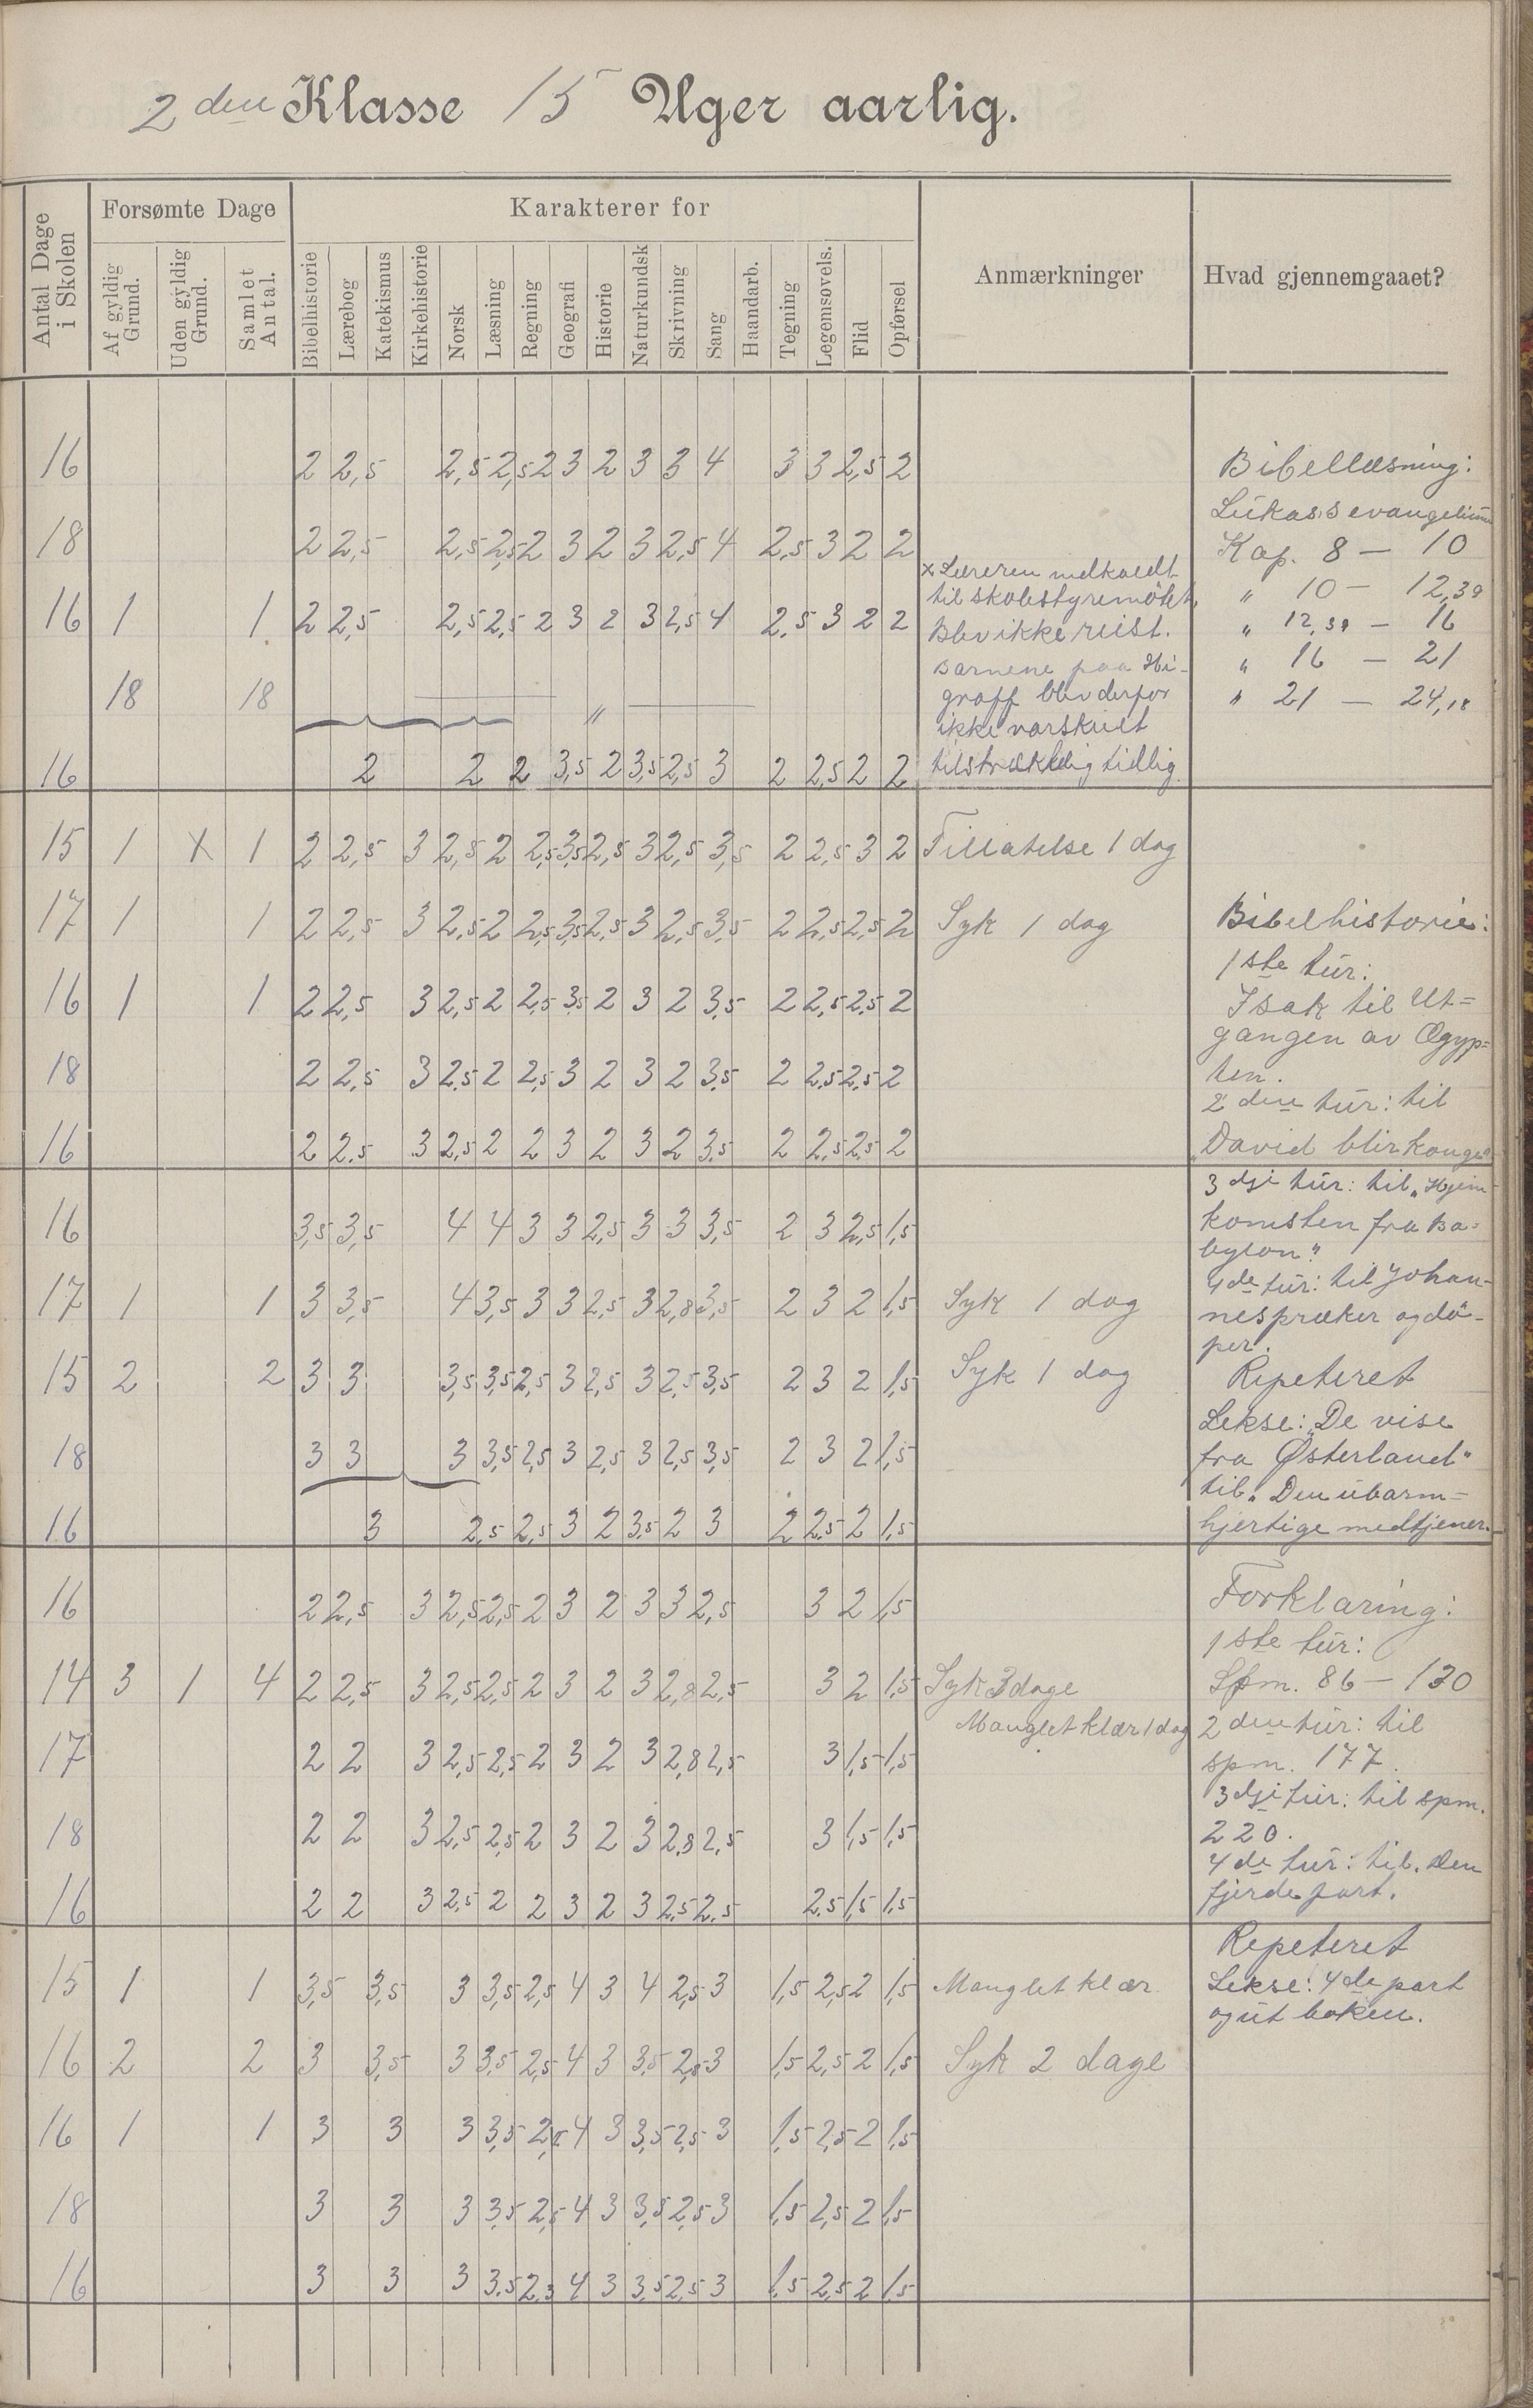 2den Klasse 15 Uger aarlig.
Antal Dage i Skolen
Forsømte Dage
Karakterer for
Af gyldig Grund.
Uden gyldig Grund.
Samlet Antal.
Bibelhistorie
Lærebog
Katekismus
Kirkehistorie
Norsk
Læsning
Regning
Geografi
Historie
Naturkundsk
Skrivning
Sang
Haandarb.
Tegning
Legemsøvels.
Flid
Opførsel
Anmærkninger
Hvad gjennemgaaet?
16 2 2,5 2,5 2,5 2 3 2 3 3 4 3 3 2,5 2
18 2 2,5 2,5 2,5 2 3 2 3 2,5 4 2,5 3 2 2
16 1 1 2 2,5 2,5 2,5 2 3 2 3 2,5 4 2,5 3 2 2
18 18 "
16 2 2 2 3,5 2 3,5 2,5 3 2 2,5 2 2
15 1 X 1 2 2,5 3 2,5 2 2,5 3,5 2,5 3 2,5 3,5 2 2,5 3 2
17 1 1 2 2,5 3 2,5 2 2,5 3,5 2,5 3 2,5 3,5 2 2,5 2,5 2
16 1 1 2 2,5 3 2,5 2 2,5 3,5 2 3 2 3,5 2 2,5 2,5 2
18 2 2,5 3 2,5 2 2,5 3 2 3 2 3,5 2 2,5 2,5 2
16 2 2,5 3 2,5 2 2 3 2 3 2 3,5 2 2,5 2,5 2
16 3,5 3,5 4 4 3 3 2,5 3 3 3,5 2 3 2,5 1,5
17 1 1 3 3,5 4 3,5 3 3 2,5 3 2,8 3,5 2 3 2 1,5
15 2 2 3 3 3,5 3,5 2,5 3 2,5 3 2,5 3,5 2 3 2 1,5
18 3 3 3 3,5 2,5 3 2,5 3 2,5 3,5 2 3 2 1,5
16 3 2,5 2,5 3 2 3,5 2 3 2 2,5 2 1,5
16 2 2,5 3 2,5 2,5 2 3 2 3 3 2,5 3 2 1,5
14 3 1 4 2 2,5 3 2,5 2,5 2 3 2 3 2,8 2,5 3 2 1,5
17 2 2 3 2,5 2,5 2 3 2 3 2,8 2,5 3 1,5 1,5
18 2 2 3 2,5 2,5 2 3 2 3 2,8 2,5 3 1,5 1,5
16 2 2 3 2,5 2 2 3 2 3 2,5 2,5 2,5 1,5 1,5
15 1 1 3,5 3,5 3 3,5 2,5 4 3 4 2,5 3 1,5 2,5 2 1,5
16 2 2 3 3,5 3 3,5 2,5 4 3 3,5 2,5 3 1,5 2,5 2 1,5
16 1 1 3 3 3 3,5 2,5 4 3 3,5 2,5 3 1,5 2,5 2 1,5
18 3 3 3 3,5 2,5 4 3 3,5 2,5 3 1,5 2,5 2 1,5
16 3 3 3 3,5 2,3 4 3 3,5 2,5 3 1,5 2,5 2 1,5
x Læreren indkaldt
til skolestyremötet,
Blev ikke reist.
Barnene paa
blev derfor
ikke varskuet
tilstrækkelig tidlig.
Tillatelse 1 dag
Syk 1 dag
Syk 1 dag
Syk 1 dag
Syk 3 dage
Manglet klær 1 dag
Manglet klær
Syk 2 dage
Bibellæsning:
Lukas's evangelium
Kap. 8 — 10
" 10 — 12,39
" 12,39 — 16
" 16 — 21
" 21 — 24,18
Bibelhistorie:
1ste tur:
Isak til Ut=
gangen av Ægyp=
ten.
2den tur: til
"David blir konge"
3dje tur: til "Hjem-
komsten fra Ba=
bylon"
4de tur: til Johan-
nes præker og dö-
per.
Repeteret
Lekse: "De vise
fra Østerland"
til "Den ubarm=
hjertige medtjener.
Forklaring:
1ste tur:
Spm. 86 — 130
2den tur: til
spm. 177.
3dje tur: til spm.
220.
4de tur: til. Den
fjerde part.
Repeteret
Lekse: 4de part
og ut boken.